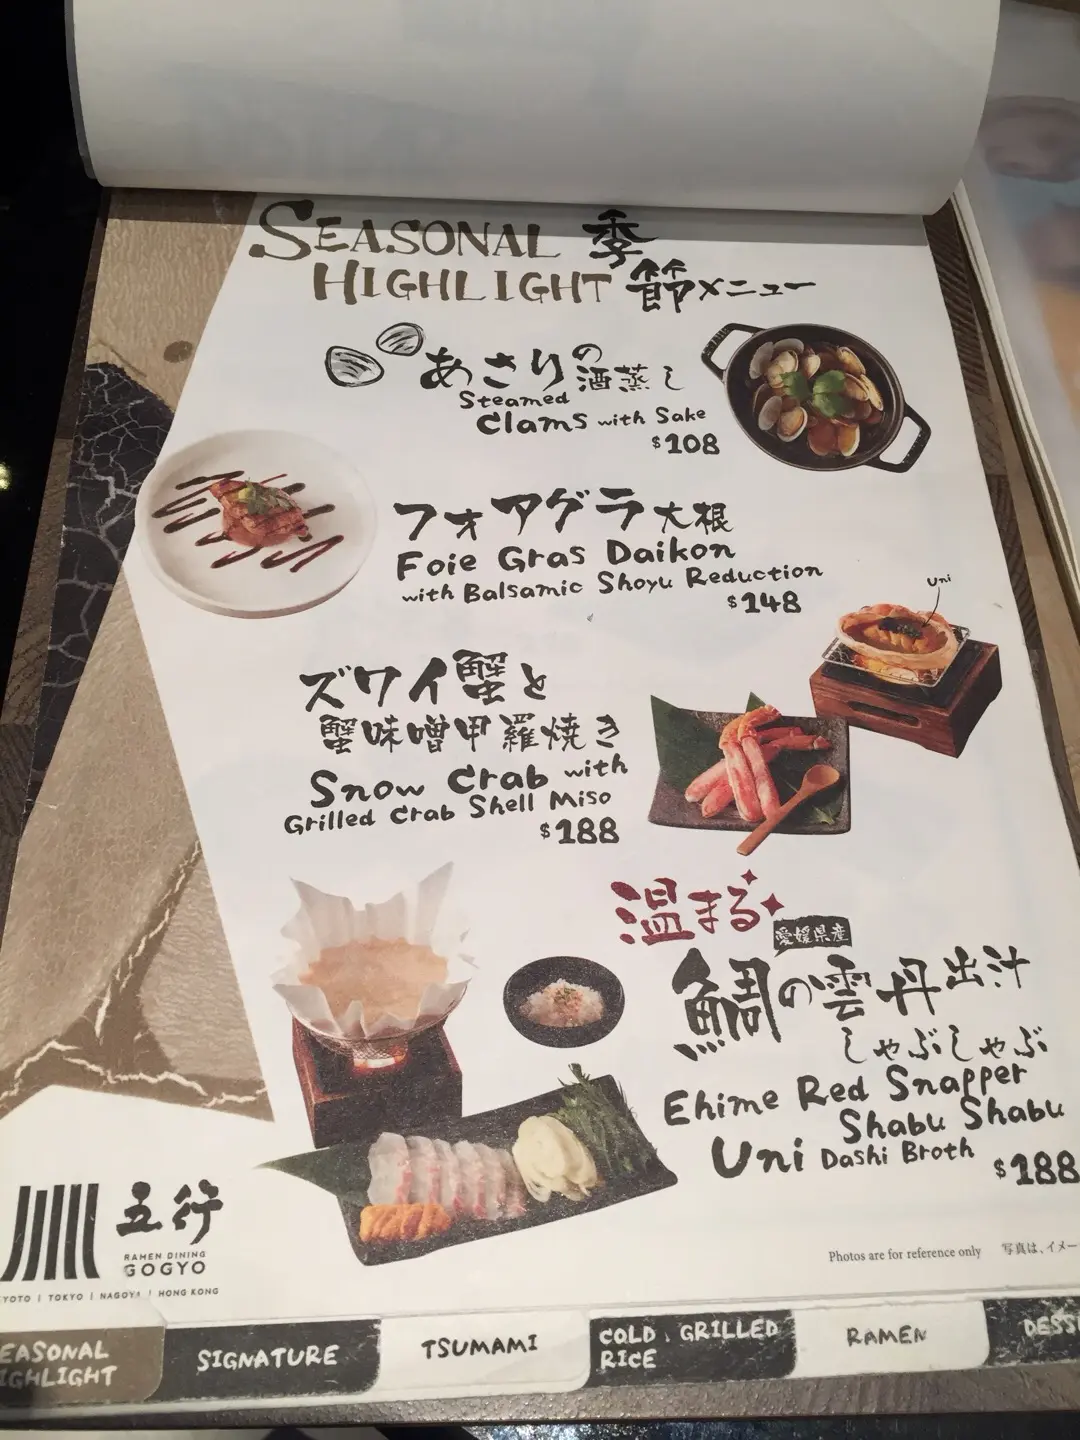 SEASONAL 季
HIGHLIGHT 節メニュー
あさりの酒蒸し
Steamed
Clams with Sake
$108
フォアグラ大根
Foie Gras Daikon
with Balsamic Shoyu Reduction
$148
uni
ズワイ蟹と
蟹味噌甲羅焼き
Snow Crab with
Grilled Crab Shell Miso
$188
温まる
愛媛県産
鯛の雲丹出汁
しゃぶしゃぶ
Ehime Red Snapper
Shabu Shabu
Uni Dashi Broth
$188
五行
RAMEN DINING
GOGYO
YOTO | TOKYO | NAGOYA | HONG KONG
Photos are for reference only 写真は、イメー
EASONAL
IGHLIGHT
SIGNATURE
TSUMAMI
COLD, GRILLED
RICE
RAMEN
DESS